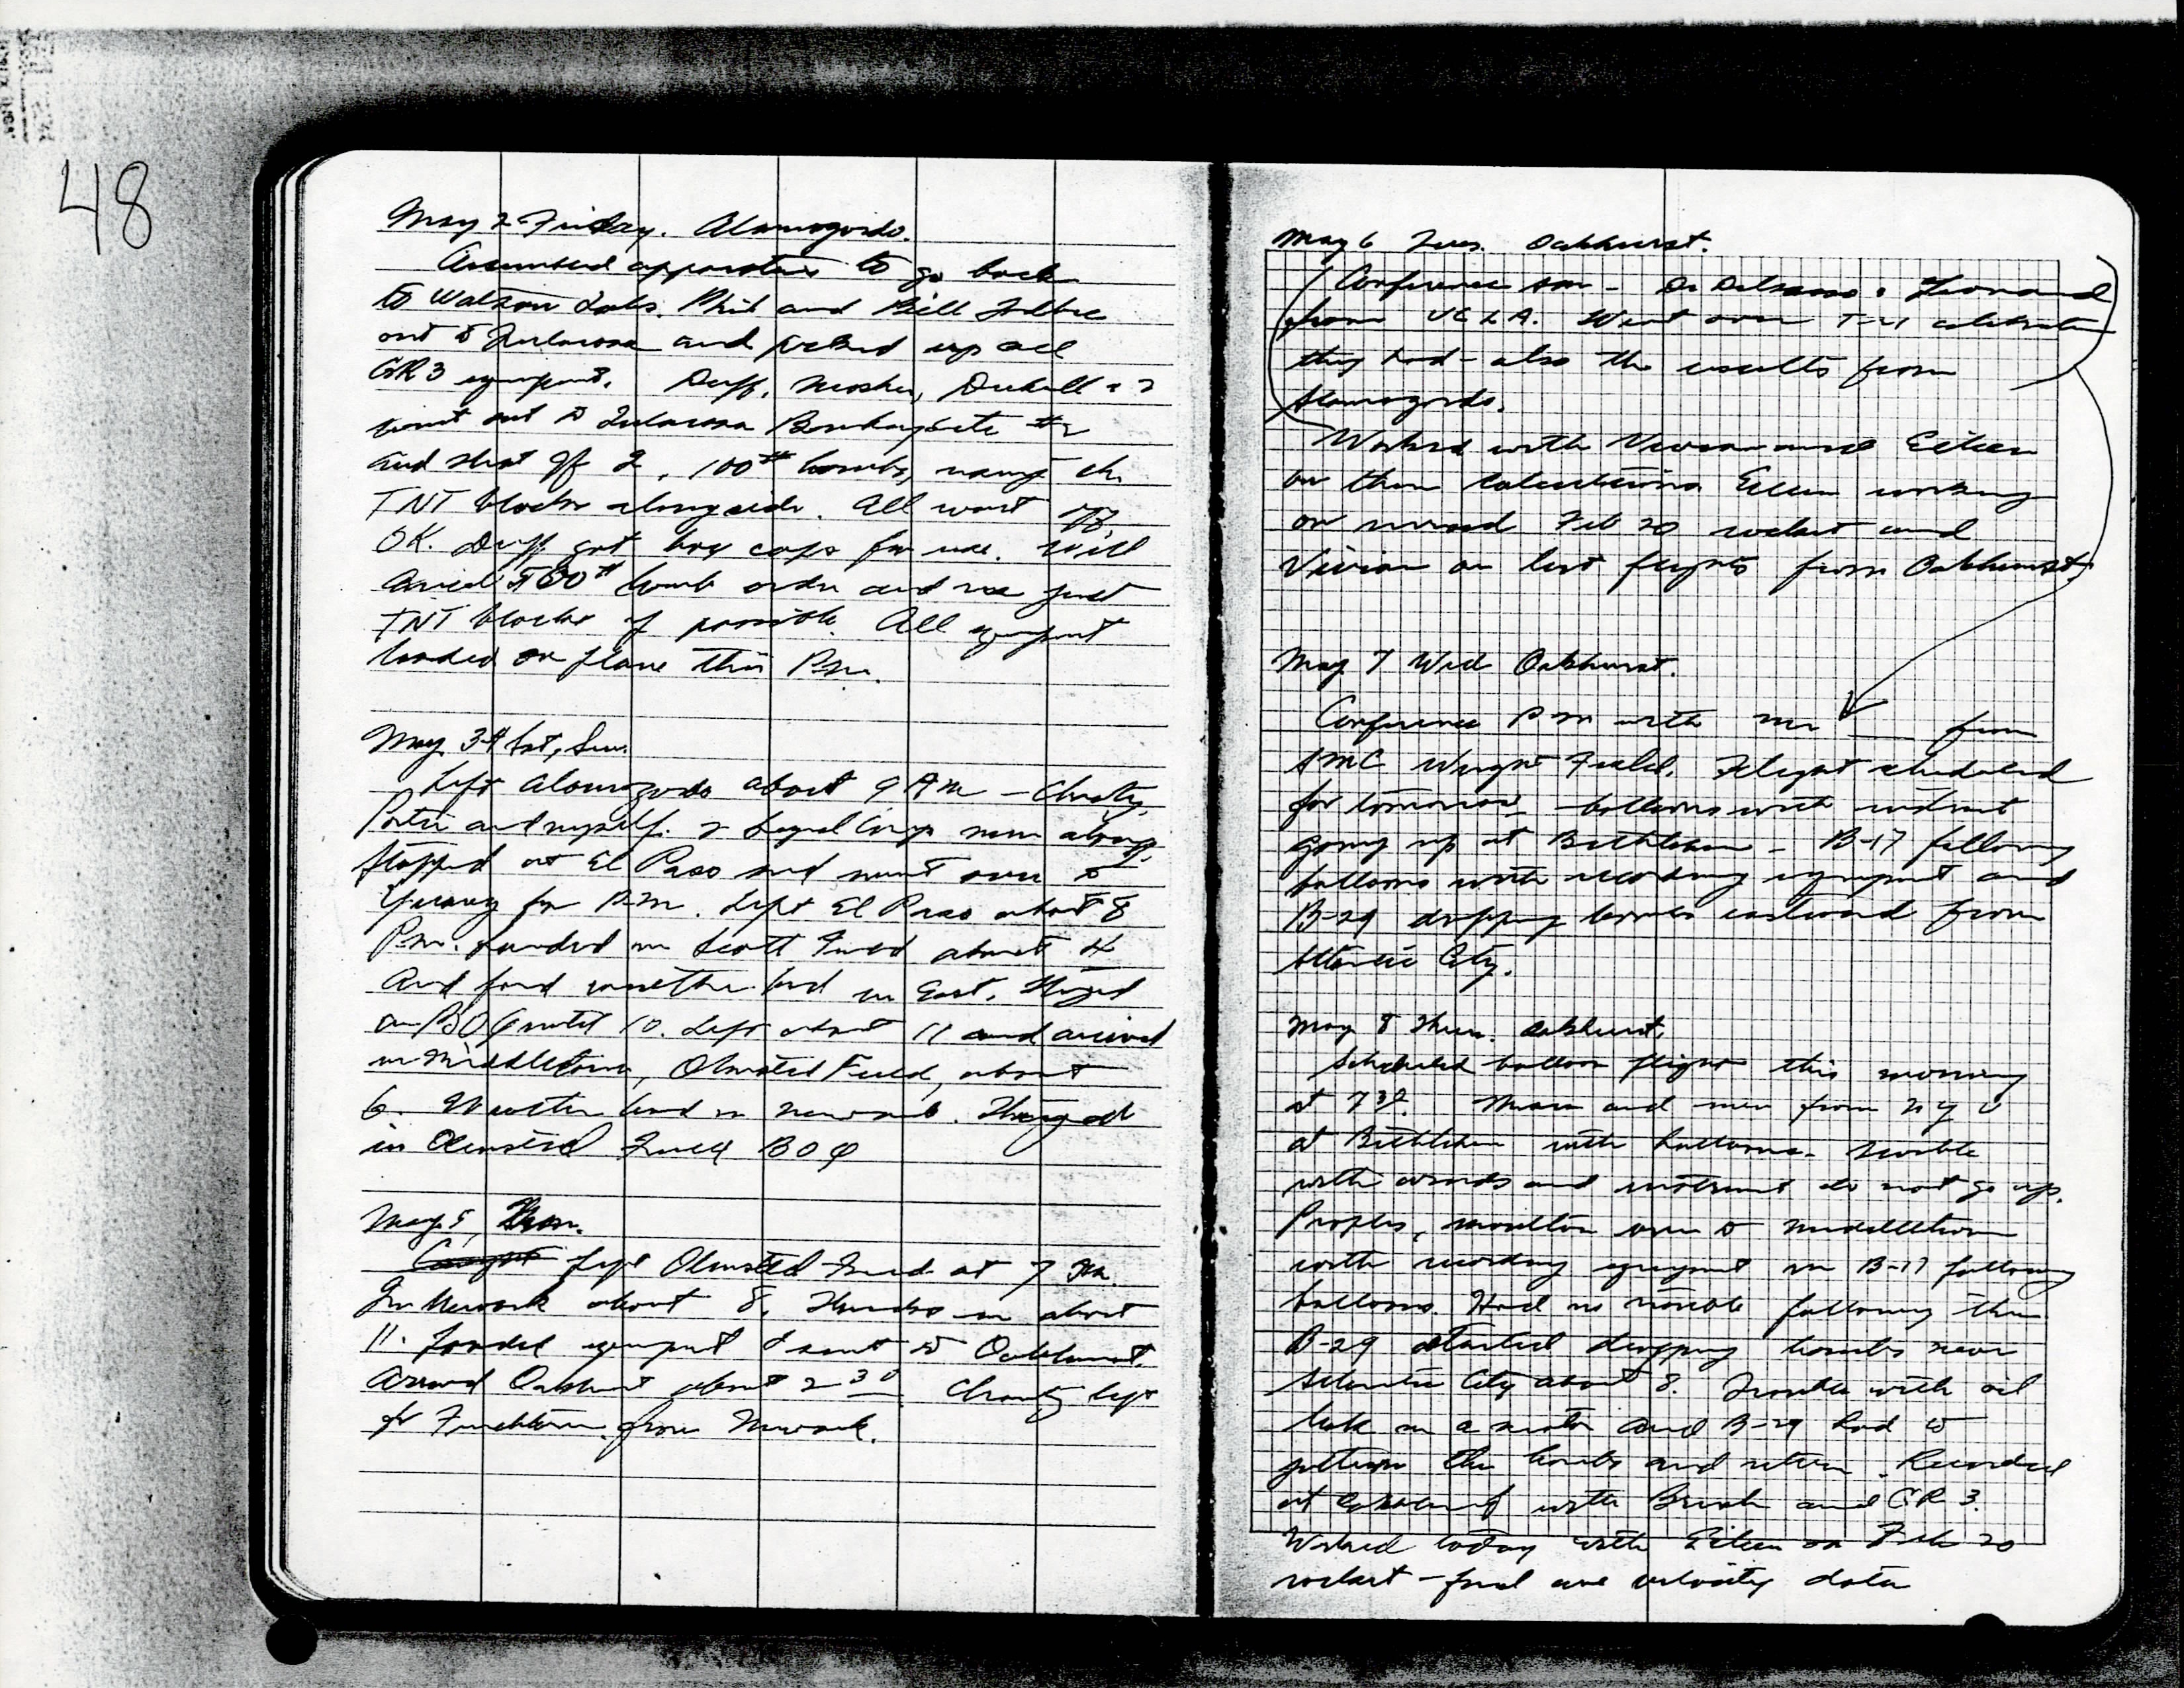 48
May 2 Friday. Alamogordo.
Assembled apparatus to go back
to Watson Labs. Phil and Bill
out to Tularosa and picked up all
GR3 equipment. Duff, Mosher, &
went out to Tularosa Bombing site #2
and shot off 2, 100# bombs, using
TNT blocks alongside. All went off
OK. Duff got box caps for use. Will
500# bomb order and use just
TNT blocks if possible. All equipment
loaded on plane this P.M.
May 3-4 Sat, Sun.
Left Alamogordo about 9 AM - Charly,
and myself. 2 Signal Corps men along.
Stopped at El Paso and went over to
for P.M. Left El Paso about 8
P.M. Landed in Scott Field about 4
and found weather bad in East. Stayed
in BOQ until 10. Left about 11 and arrived
in Middletown, Olmsted Field, about
6. Weather bad in Newark. Stayed
in Olmsted Field BOQ
May 5, Mon.
left Olmsted Field at 7 AM
In Newark about 8. in about
11. Loaded equipment & sent to Oakhurst.
Arrived Oakhurst about 2 30. Charly left
for from Newark.
May 6 Tues. Oakhurst.
(Conference AM - Dr Delsasso &
from UCLA. Went over T-21 calibration
they had - also the results from
Alamogordo.
Worked with Vivian and Eileen
on their calculations Eileen working
on revised Feb 20 rocket and
Vivian on last flights from Oakhurst.
May 7 Wed Oakhurst.
Conference PM with Mr ___ from
AMC Wright Field. Flight scheduled
for tomorrow - balloons with instrument
going up at Bethlehem - B-17 following
balloons with recording equipment and
B-29 dropping bombs eastward from
Atlantic City.
May 8 Thur. Oakhurst.
Scheduled balloon flight this morning
at 7 30. and men from NYU
at Bethlehem with balloons. Trouble
with winds and instrument do not go up.
Peoples, Moulton over to Middletown
with recording equipment in B-17 following
balloons. Had no trouble following them.
B-29 started dropping bombs near
Atlantic City about 8. Trouble with oil
leak in a motor and B-29 had to
jettison the bombs and return. Recorded
at Oakhurst with Brush and GR 3.
Worked today with Eileen on Feb 20
rocket - final and velocity data